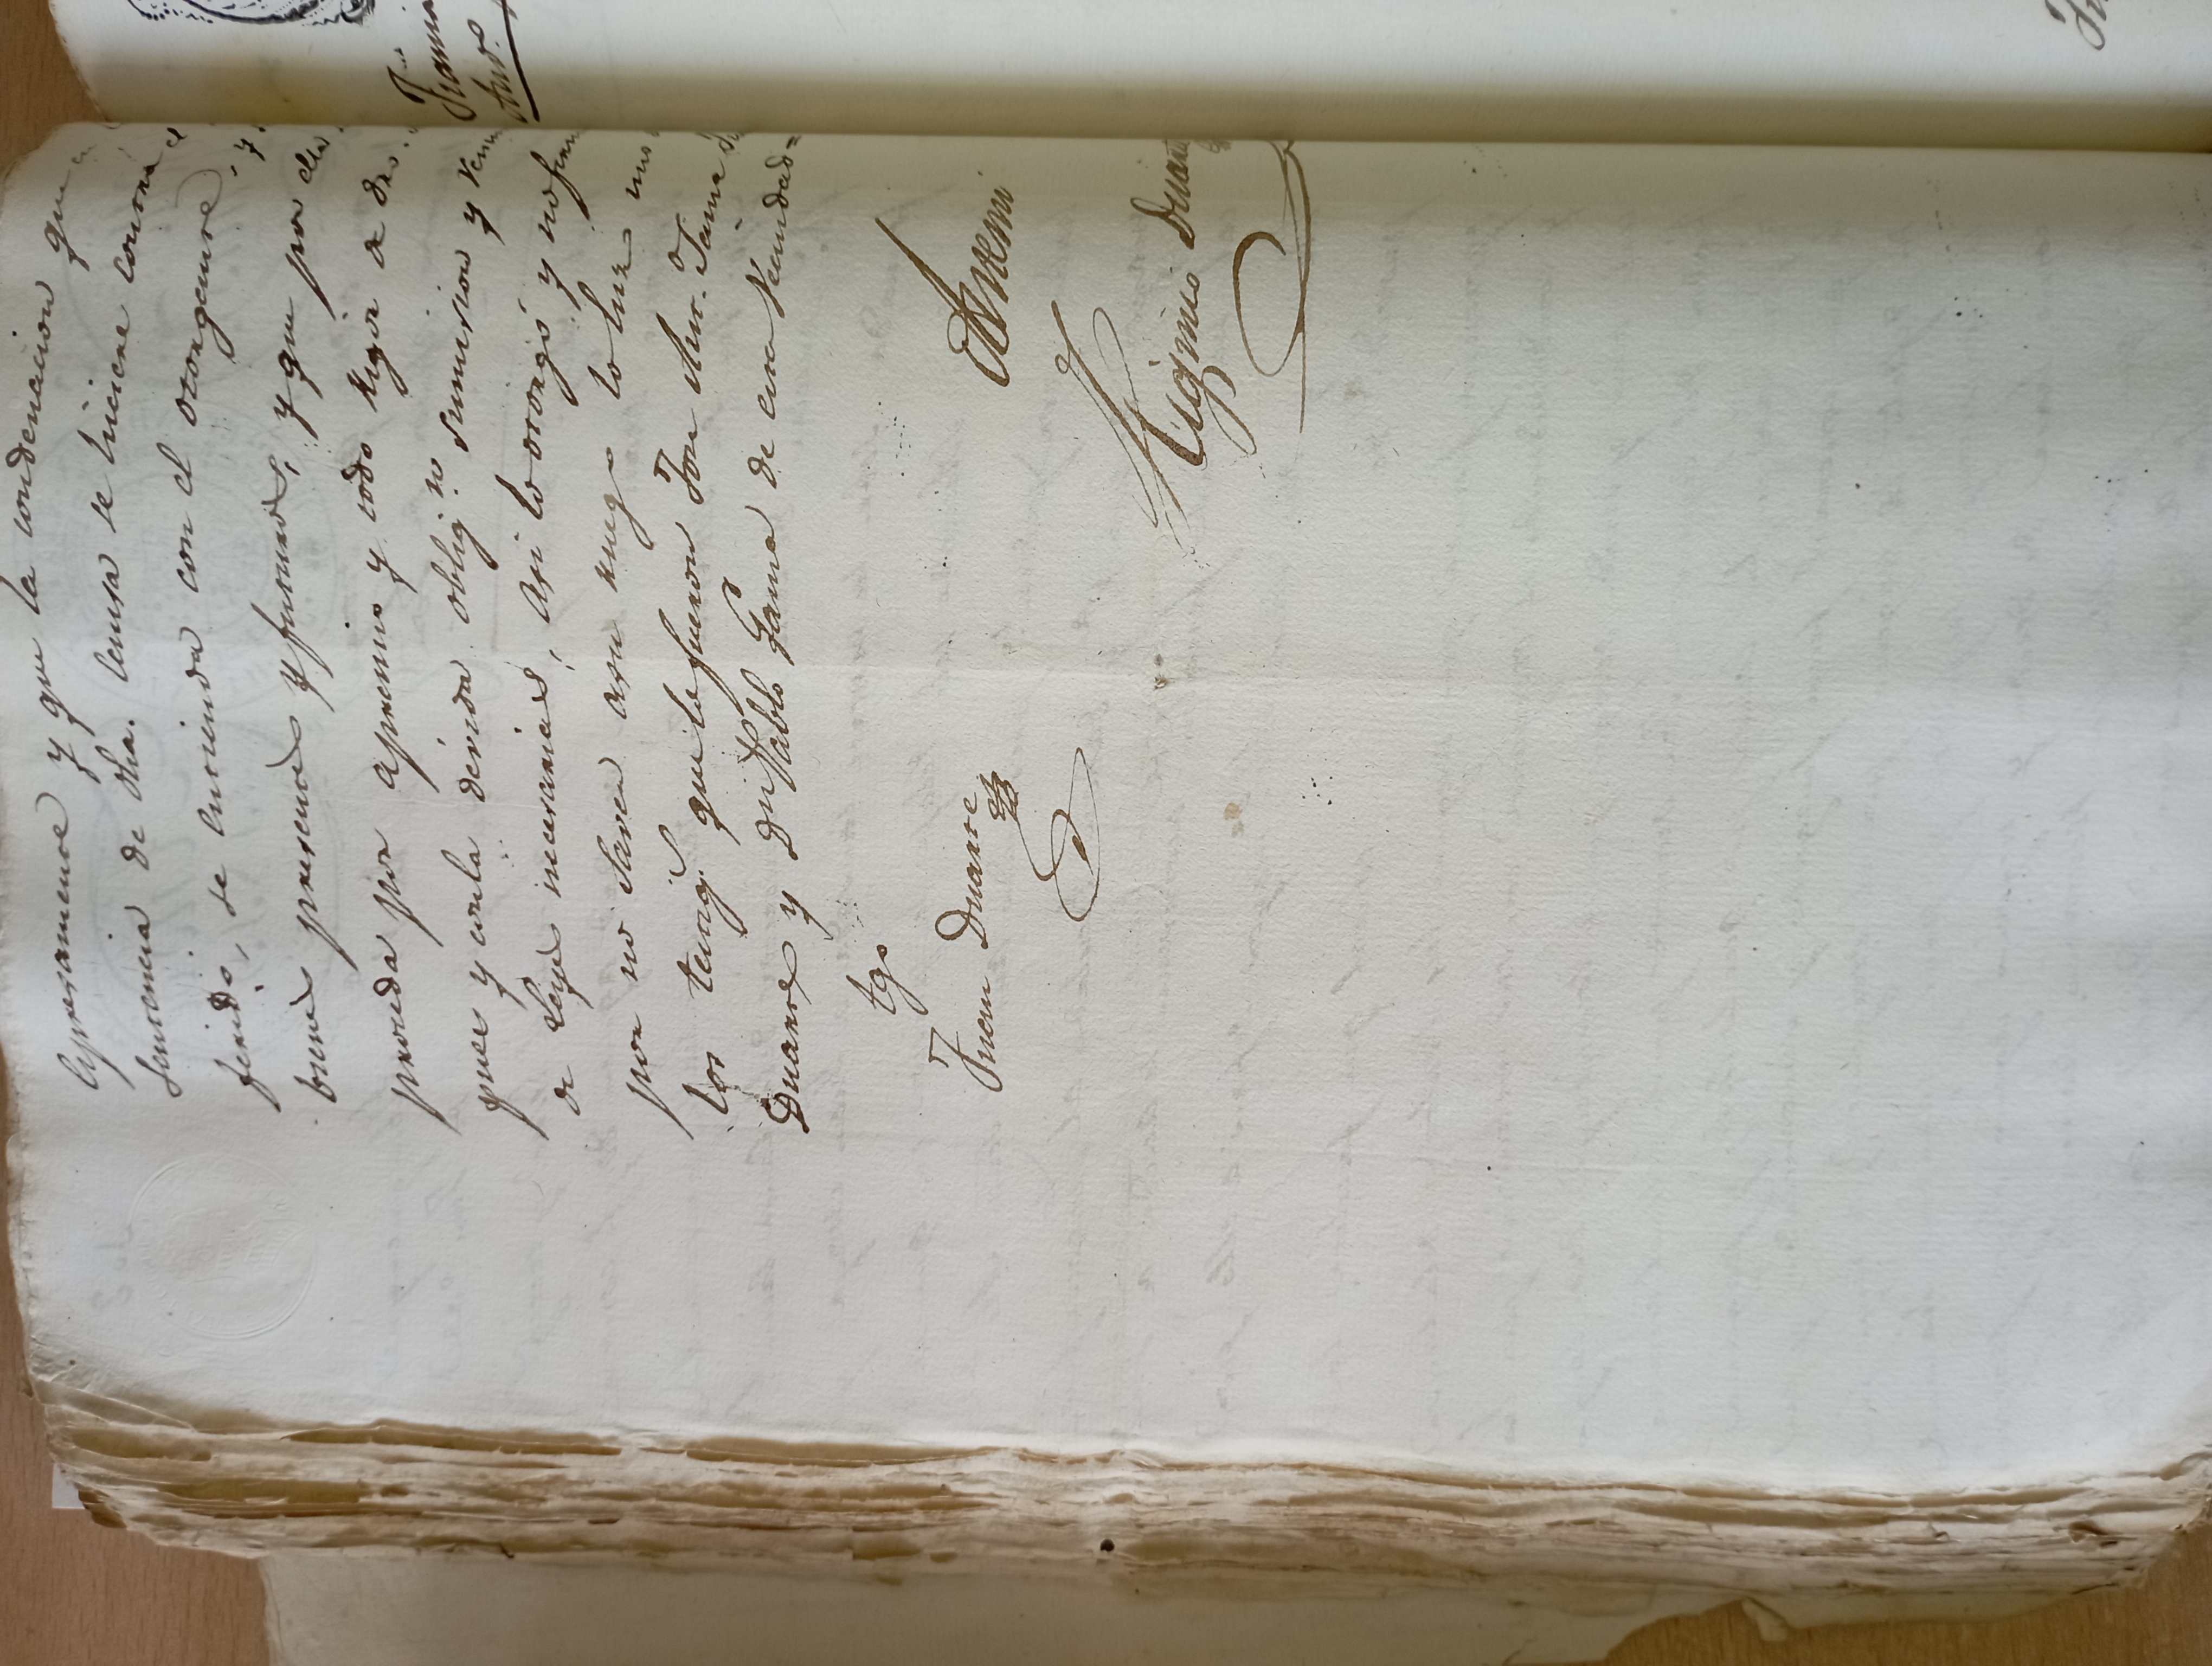 Expresamente y que la condenacion que
sentencia de dha. Causa se hiciere contra el
ferido, se entienda con el otorgante, y
bienes presentes y futuros, y que por ella
proceda por apremio y todo rigor de dro.
pues y conla devida oblig.n sumision y renun
de Leyes necesarias, asi lo otorgó y no firm
por no saver asu ruego lo hizo uno
los testigs. que lo fueron Jose Ant.o Jama
Duarte y Dn Pablo Gama de esta Vecindad=
tgo
Juan Duarte
Antemi
Higinio Duarte
Fianza
And.s